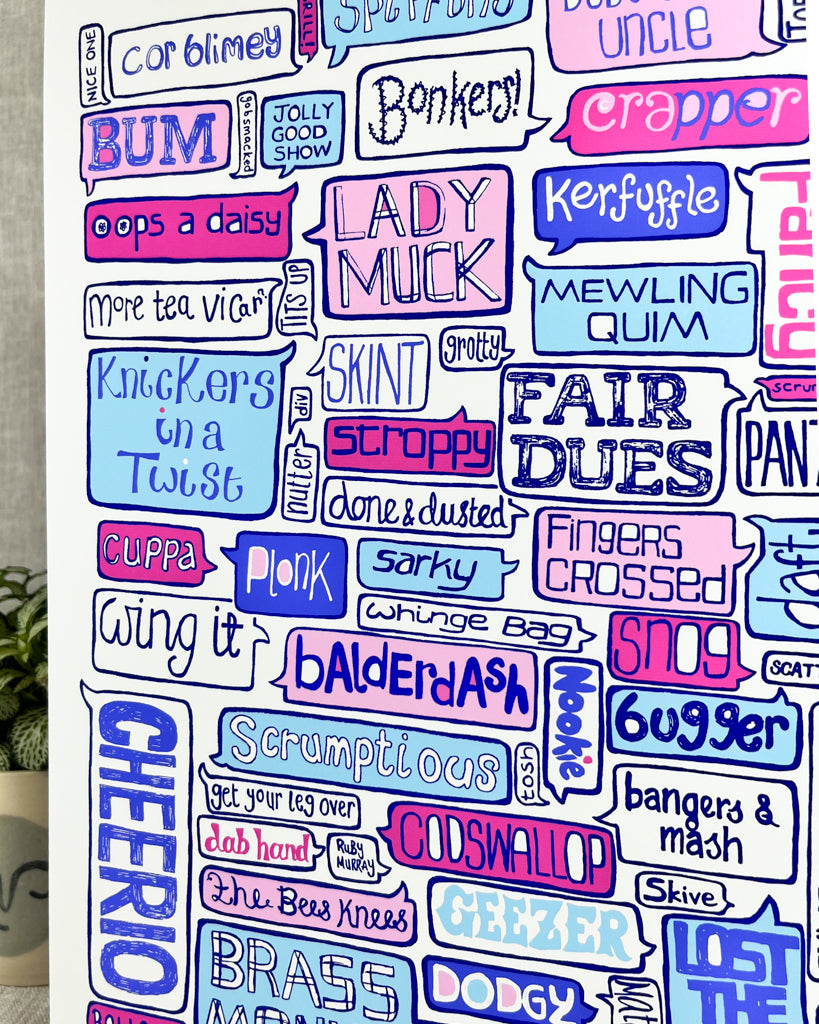 NICE ONE
cor blimey
UNCLE
BUM
gobsmacked
JOLLY
GOOD
SHOW
Bonkers!
crapper
oops a daisy
LADY
MUCK
kerfuffle
Fancy
more tea vicar?
TITS UP
MEWLING
QUIM
Knickers
in a
Twist
SKINT
grotty
div
FAIR
DUES
stroppy
nutter
done & dusted
cuppa
plonk
sarky
Fingers
CROSSED
daft
wing it
whinge Bag
snog
bAlderdAsh
Nookie
bugger
CHEERIO
Scrumptious
tosh
get your leg over
bangers &
mash
dab hand
RUBY
MURRAY
CODSWALLOP
the Bees Knees
Skive
GEEZER
LOST
THE
BRASS
DODGY